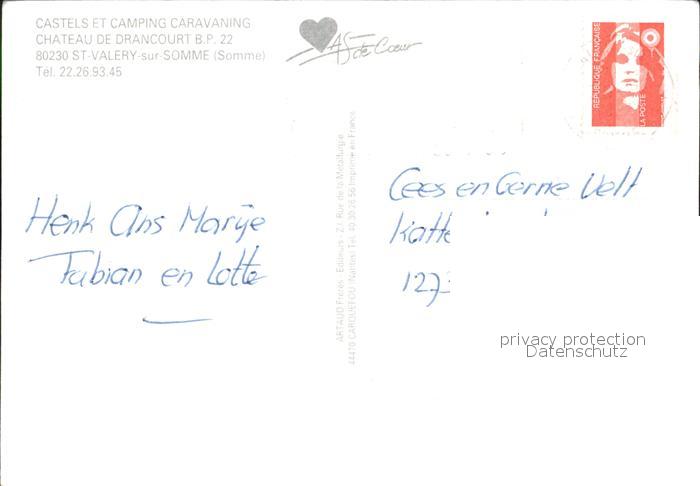 CASTELS ET CAMPING CARAVANING
CHATEAU DE DRANCOURT B.P. 22
80230 ST-VALERY-sur-SOMME (Somme)
Tél. 22.26.93.45
AS de Cœur
RÉPUBLIQUE FRANÇAISE
LA POSTE
ARTAUD Frères - Editeurs - Z.I. Rue de la Métallurgie
44470 CARQUEFOU (Nantes) Tél. 40 30 26 56 Imprimé en France
Henk Ans Marije
Fabian en Lotte
Cees en Gerrie Velt
Katte
127
privacy protection
Datenschutz